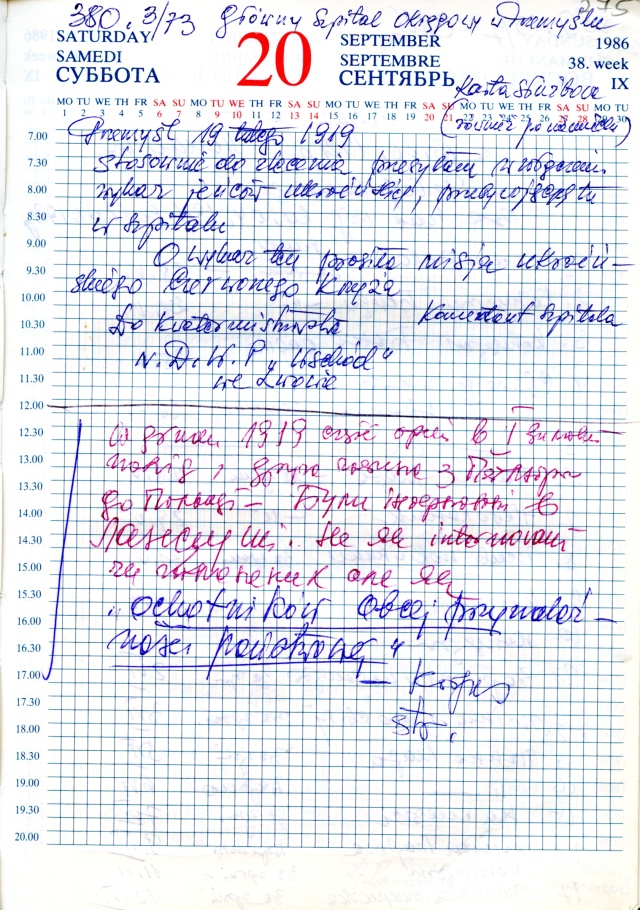 380.3/73 Główny Szpital Okręgowy w Przemyślu
375
SATURDAY
SAMEDI
СУББОТА
20
SEPTEMBER
SEPTEMBRE
СЕНТЯБРЬ
1986
38. week
IX
Karta służbowa
MO TU WE TH FR SA SU MO TU WE TH FR SA SU MO TU WE TH FR SA SU MO TU WE TH FR SA SU MO TU
1 2 3 4 5 6 7 8 9 10 11 12 13 14 15 16 17 18 19 20 21 22 23 24 25 26 27 28 29 30
(również po niemiecku)
7.00 Przemyśl 19 lutego 1919
7.30 Stosownie do zlecenia przesyłam
8.00 wykaz jeńców ukraińskich, przebywających tu
8.30 w szpitalu
9.00 O wykaz ten prosiła misja ukraiń-
9.30 skiego Czerwonego Krzyża
10.00
10.30 Do Kwatermistrzostwa Komendant Szpitala
11.00 N.D.W.P. "Wschód"
11.30 we Lwowie
12.00
12.30 1919 в І зимовий
13.00 похід, друга частина з
13.30 до Польщі - Були інтерновані в
14.00
14.30 Ланцуті. Не як internowani
15.00 чи полонених але як
15.30 "ochotników obcej przynależ-
16.00
16.30 ności państwowej"
17.00 - Korpus
17.30 str.
18.00
18.30
19.00
19.30
20.00